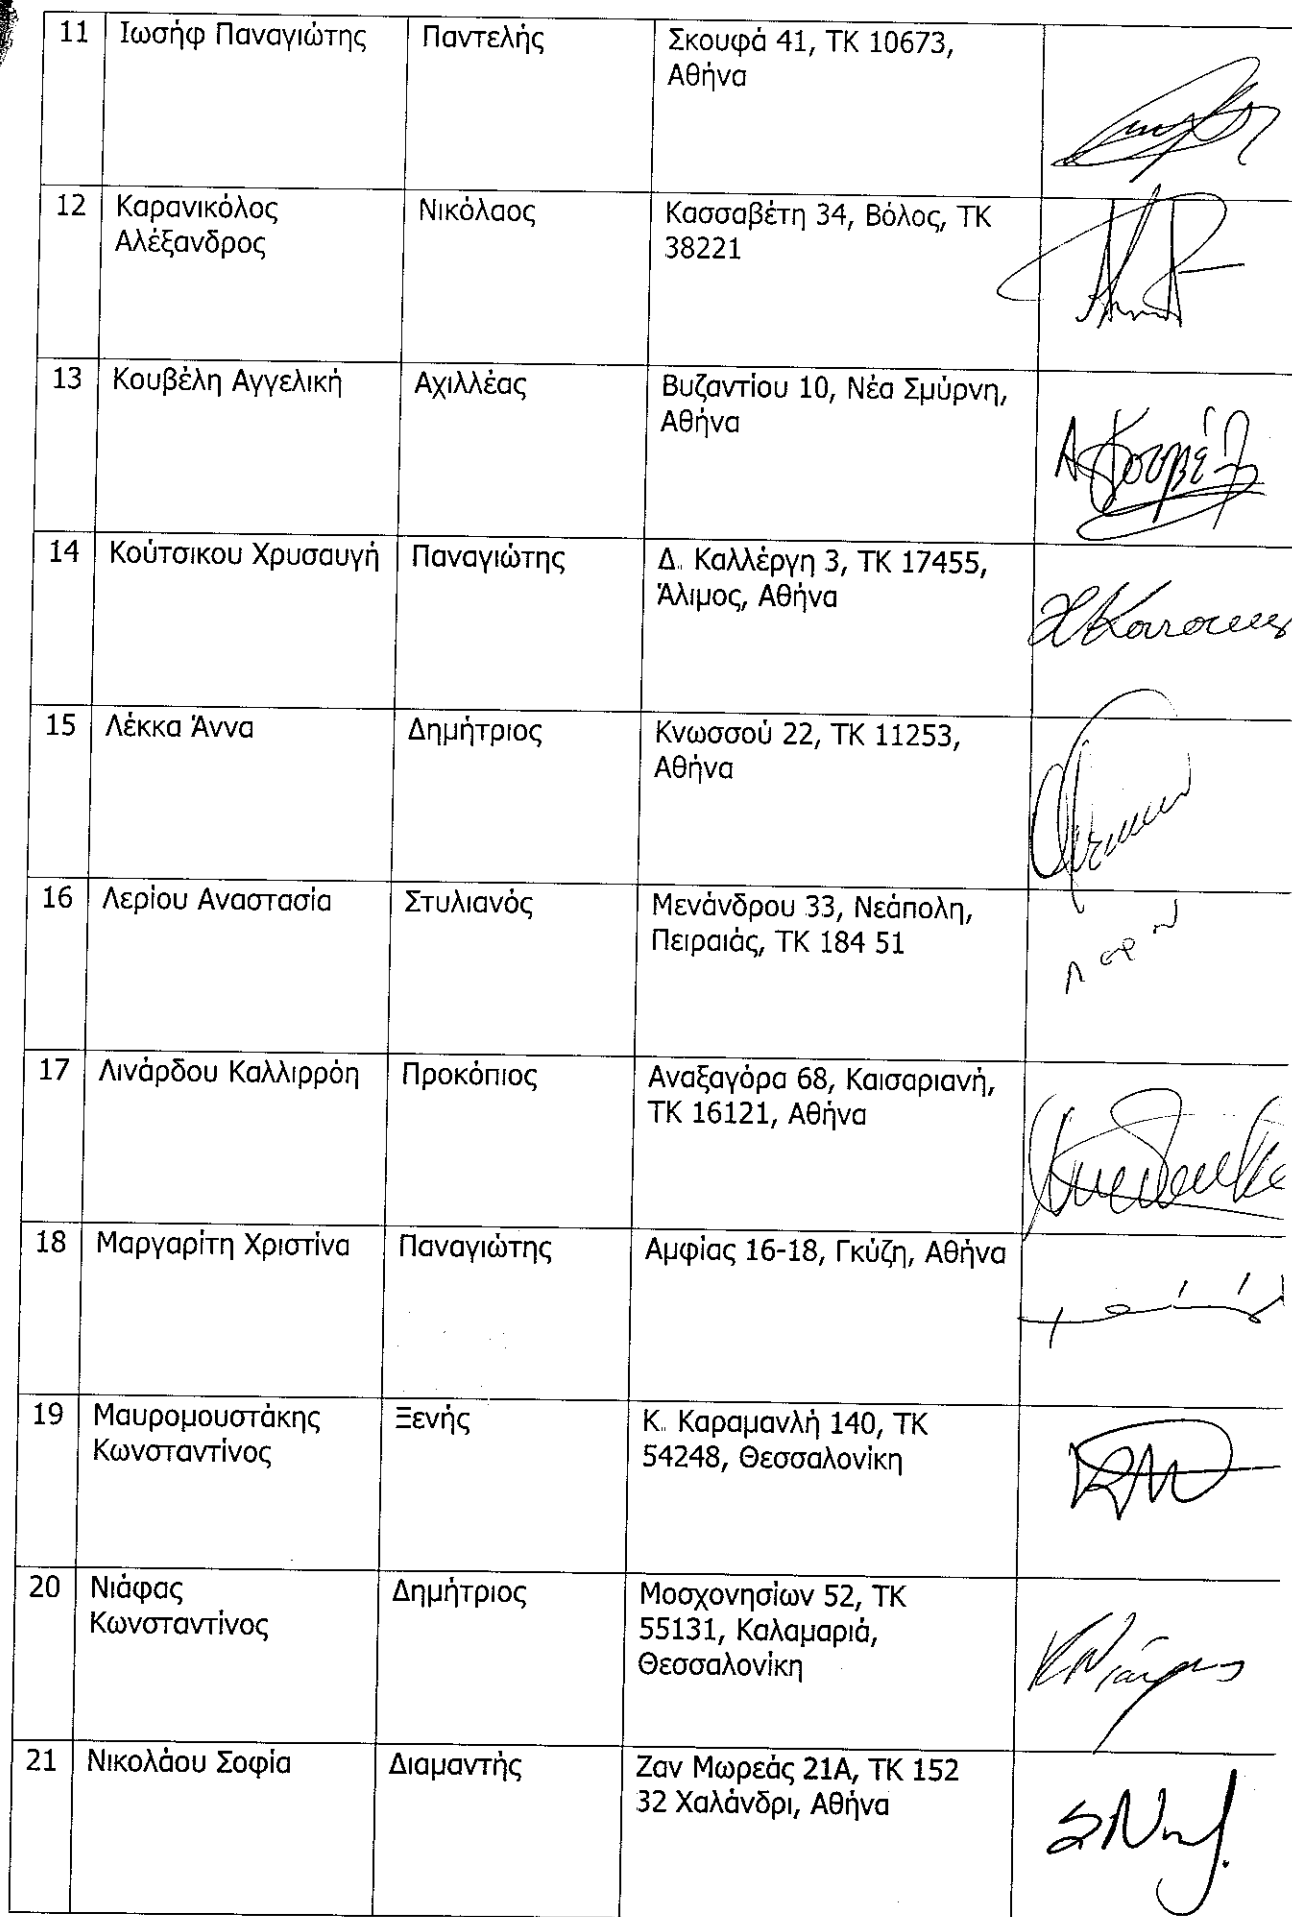 11 Ιωσήφ Παναγιώτης Παντελής Σκουφά 41, ΤΚ 10673,
Αθήνα
12 Καρανικόλος Νικόλαος Κασσαβέτη 34, Βόλος, ΤΚ
Αλέξανδρος 38221
13 Κουβέλη Αγγελική Αχιλλέας Βυζαντίου 10, Νέα Σμύρνη,
Αθήνα
Α Κουβέλη
14 Κούτσικου Χρυσαυγή Παναγιώτης Δ. Καλλέργη 3, ΤΚ 17455,
Άλιμος, Αθήνα
15 Λέκκα Άννα Δημήτριος Κνωσσού 22, ΤΚ 11253,
Αθήνα
16 Λερίου Αναστασία Στυλιανός Μενάνδρου 33, Νεάπολη,
Πειραιάς, ΤΚ 184 51
17 Λινάρδου Καλλιρρόη Προκόπιος Αναξαγόρα 68, Καισαριανή,
ΤΚ 16121, Αθήνα
18 Μαργαρίτη Χριστίνα Παναγιώτης Αμφίας 16-18, Γκύζη, Αθήνα
19 Μαυρομουστάκης Ξενής Κ. Καραμανλή 140, ΤΚ
Κωνσταντίνος 54248, Θεσσαλονίκη
20 Νιάφας Δημήτριος Μοσχονησίων 52, ΤΚ
Κωνσταντίνος 55131, Καλαμαριά,
Θεσσαλονίκη
ΚΝιάφας
21 Νικολάου Σοφία Διαμαντής Ζαν Μωρεάς 21Α, ΤΚ 152
32 Χαλάνδρι, Αθήνα